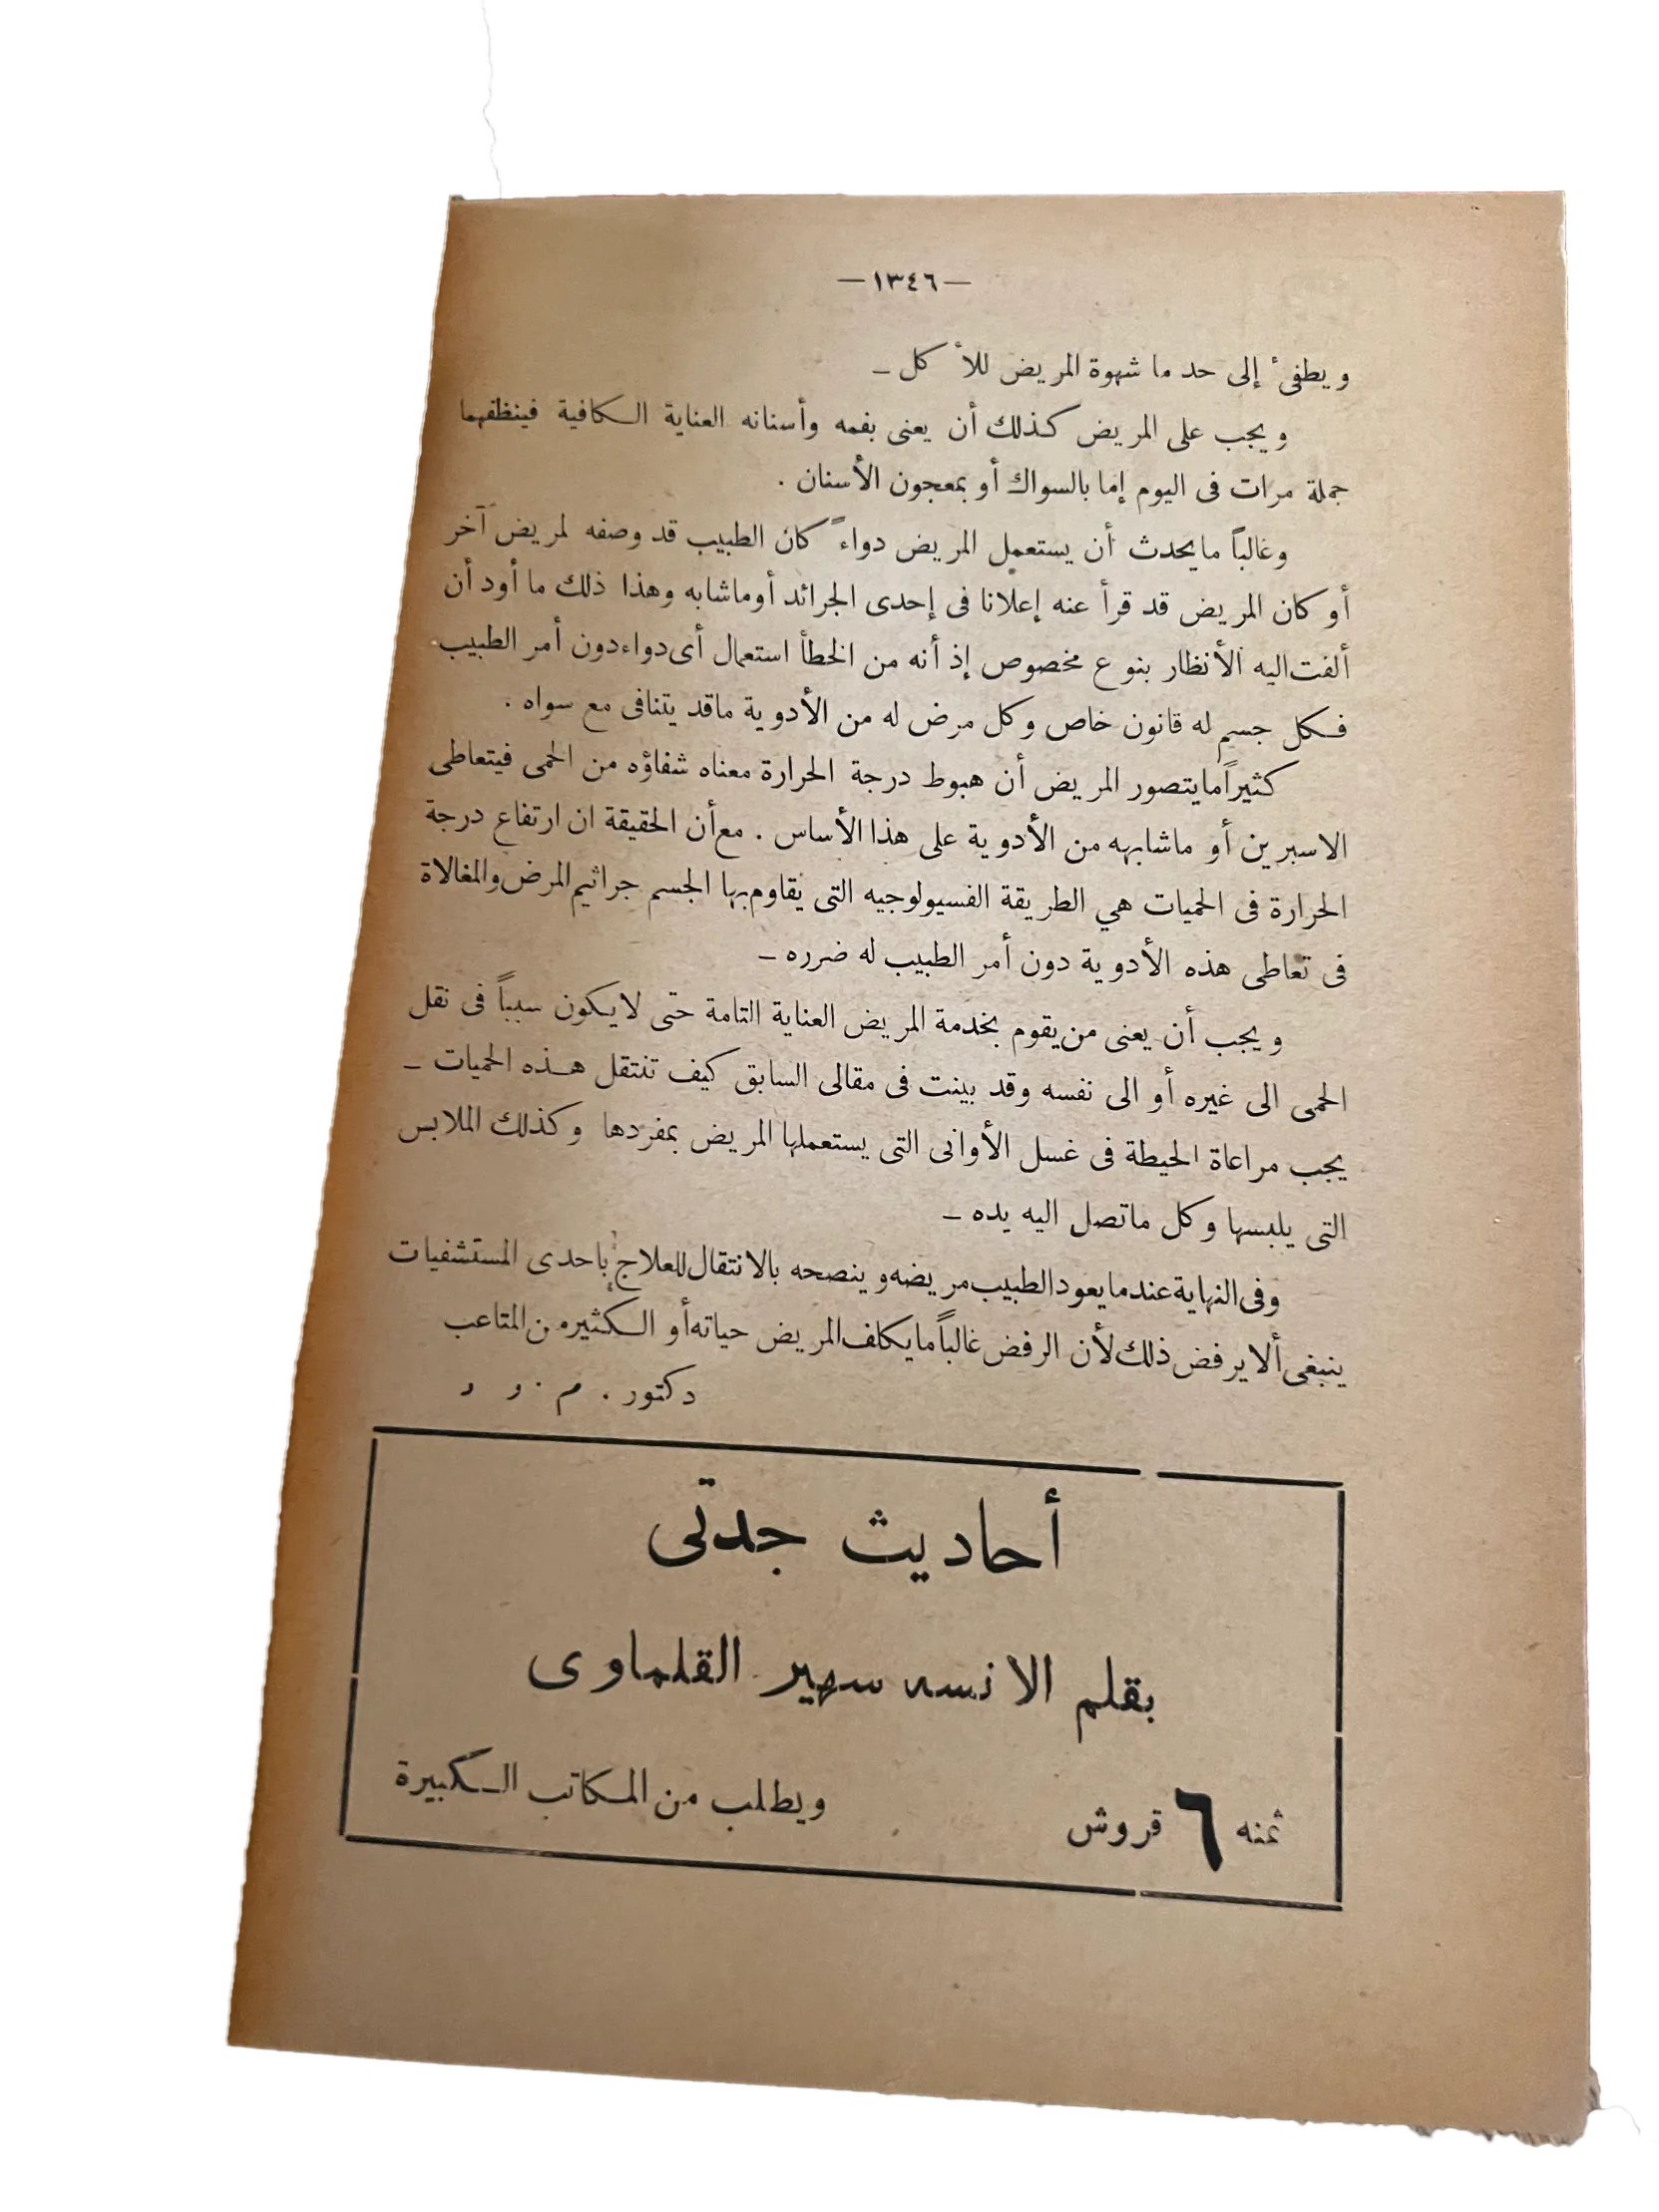 —١٣٤٦—
ويطفئ إلى حد ما شهوة المريض للأكل ـ
ويجب على المريض كذلك أن يعنى بفمه وأسنانه العناية الكافية فينظفهما
جملة مرات فى اليوم إما بالسواك أو بمعجون الأسنان .
وغالباً مايحدث أن يستعمل المريض دواءً كان الطبيب قد وصفه لمريض آخر
أو كان المريض قد قرأ عنه إعلانا فى إحدى الجرائد أوماشابه وهذا ذلك ما أود أن
ألفت اليه الأنظار بنوع مخصوص إذ أنه من الخطأ استعمال أى دواء دون أمر الطبيب
فكل جسم له قانون خاص وكل مرض له من الأدوية ماقد يتنافى مع سواه .
كثيراً مايتصور المريض أن هبوط درجة الحرارة معناه شفاؤه من الحمى فيتعاطى
الاسبرين أو ماشابهه من الأدوية على هذا الأساس . مع أن الحقيقة ان ارتفاع درجة
الحرارة فى الحميات هي الطريقة الفسيولوجيه التى يقاوم بها الجسم جراثيم المرض والمغالاة
فى تعاطى هذه الأدوية دون أمر الطبيب له ضرره ـ
ويجب أن يعنى من يقوم بخدمة المريض العناية التامة حتى لا يكون سبباً فى نقل
الحمى الى غيره أو الى نفسه وقد بينت فى مقالى السابق كيف تنتقل هذه الحميات ـ
يجب مراعاة الحيطة فى غسل الأوانى التى يستعملها المريض بمفردها وكذلك الملابس
التى يلبسها وكل ماتصل اليه يده ـ
وفى النهاية عندما يعود الطبيب مريضه وينصحه بالانتقال للعلاج باحدى المستشفيات
ينبغى ألا يرفض ذلك لأن الرفض غالباً مايكلف المريض حياته أو الكثير من المتاعب
دكتور . م . و ر
أحاديث جدتى
بقلم الانسه سهير القلماوى
ثمنه ٦ قروش ويطلب من المكاتب الكبيرة